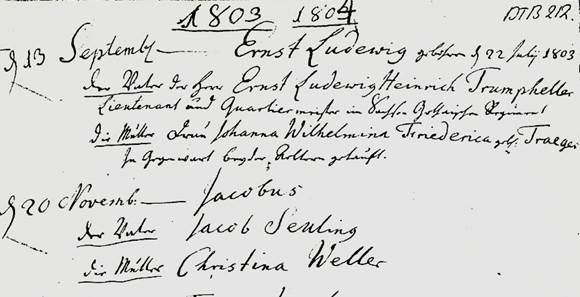 1803 1804
DTB 212.
d 13 Septemb. — Ernst Ludewig gebohren d 22 July 1803
der Vater der Herr Ernst Ludewig Heinrich Trumpheller
Lieutenant und Quartiermeister im Sachsen Gothaischen Regiment
die Mutter Frau Johanna Wilhelmina Friederica geb. Traeger
In Gegenwart beyder Eltern getauft.
d 20 Novemb. — Jacobus
der Vater Jacob Senling
die Mutter Christina Weller